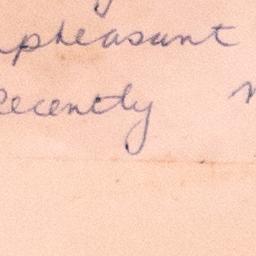 pheasant
Recently